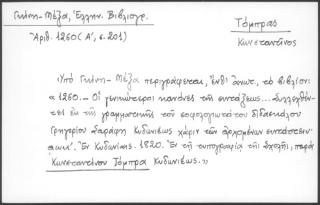 Γκίνη - Μέξα, Ἑλλην. Βιβλιογρ.
Ἀριθ. 1260 (Α', σ. 201)
Τόμπρας
Κωνσταντῖνος
Ὑπὸ Γκίνη - Μέξα περιγράφεται, ἔνθ' ἀνωτ., τὸ βιβλίον:
« 1260.- Οἱ γενικώτεροι κανόνες τῆς συντάξεως... Συλλεχθέν-
τες ἐκ τῆς γραμματικῆς τοῦ σοφολογιωτάτου διδασκάλου
Γρηγορίου Σαράφη Κυδωνιέως χάριν τῶν ἀρχομένων
Ἐν Κυδωνίαις. 1820. Ἐν τῇ τυπογραφίᾳ τῆς Σχολῆς, παρὰ
Κωνσταντίνου Τόμπρα Κυδωνιέως.»